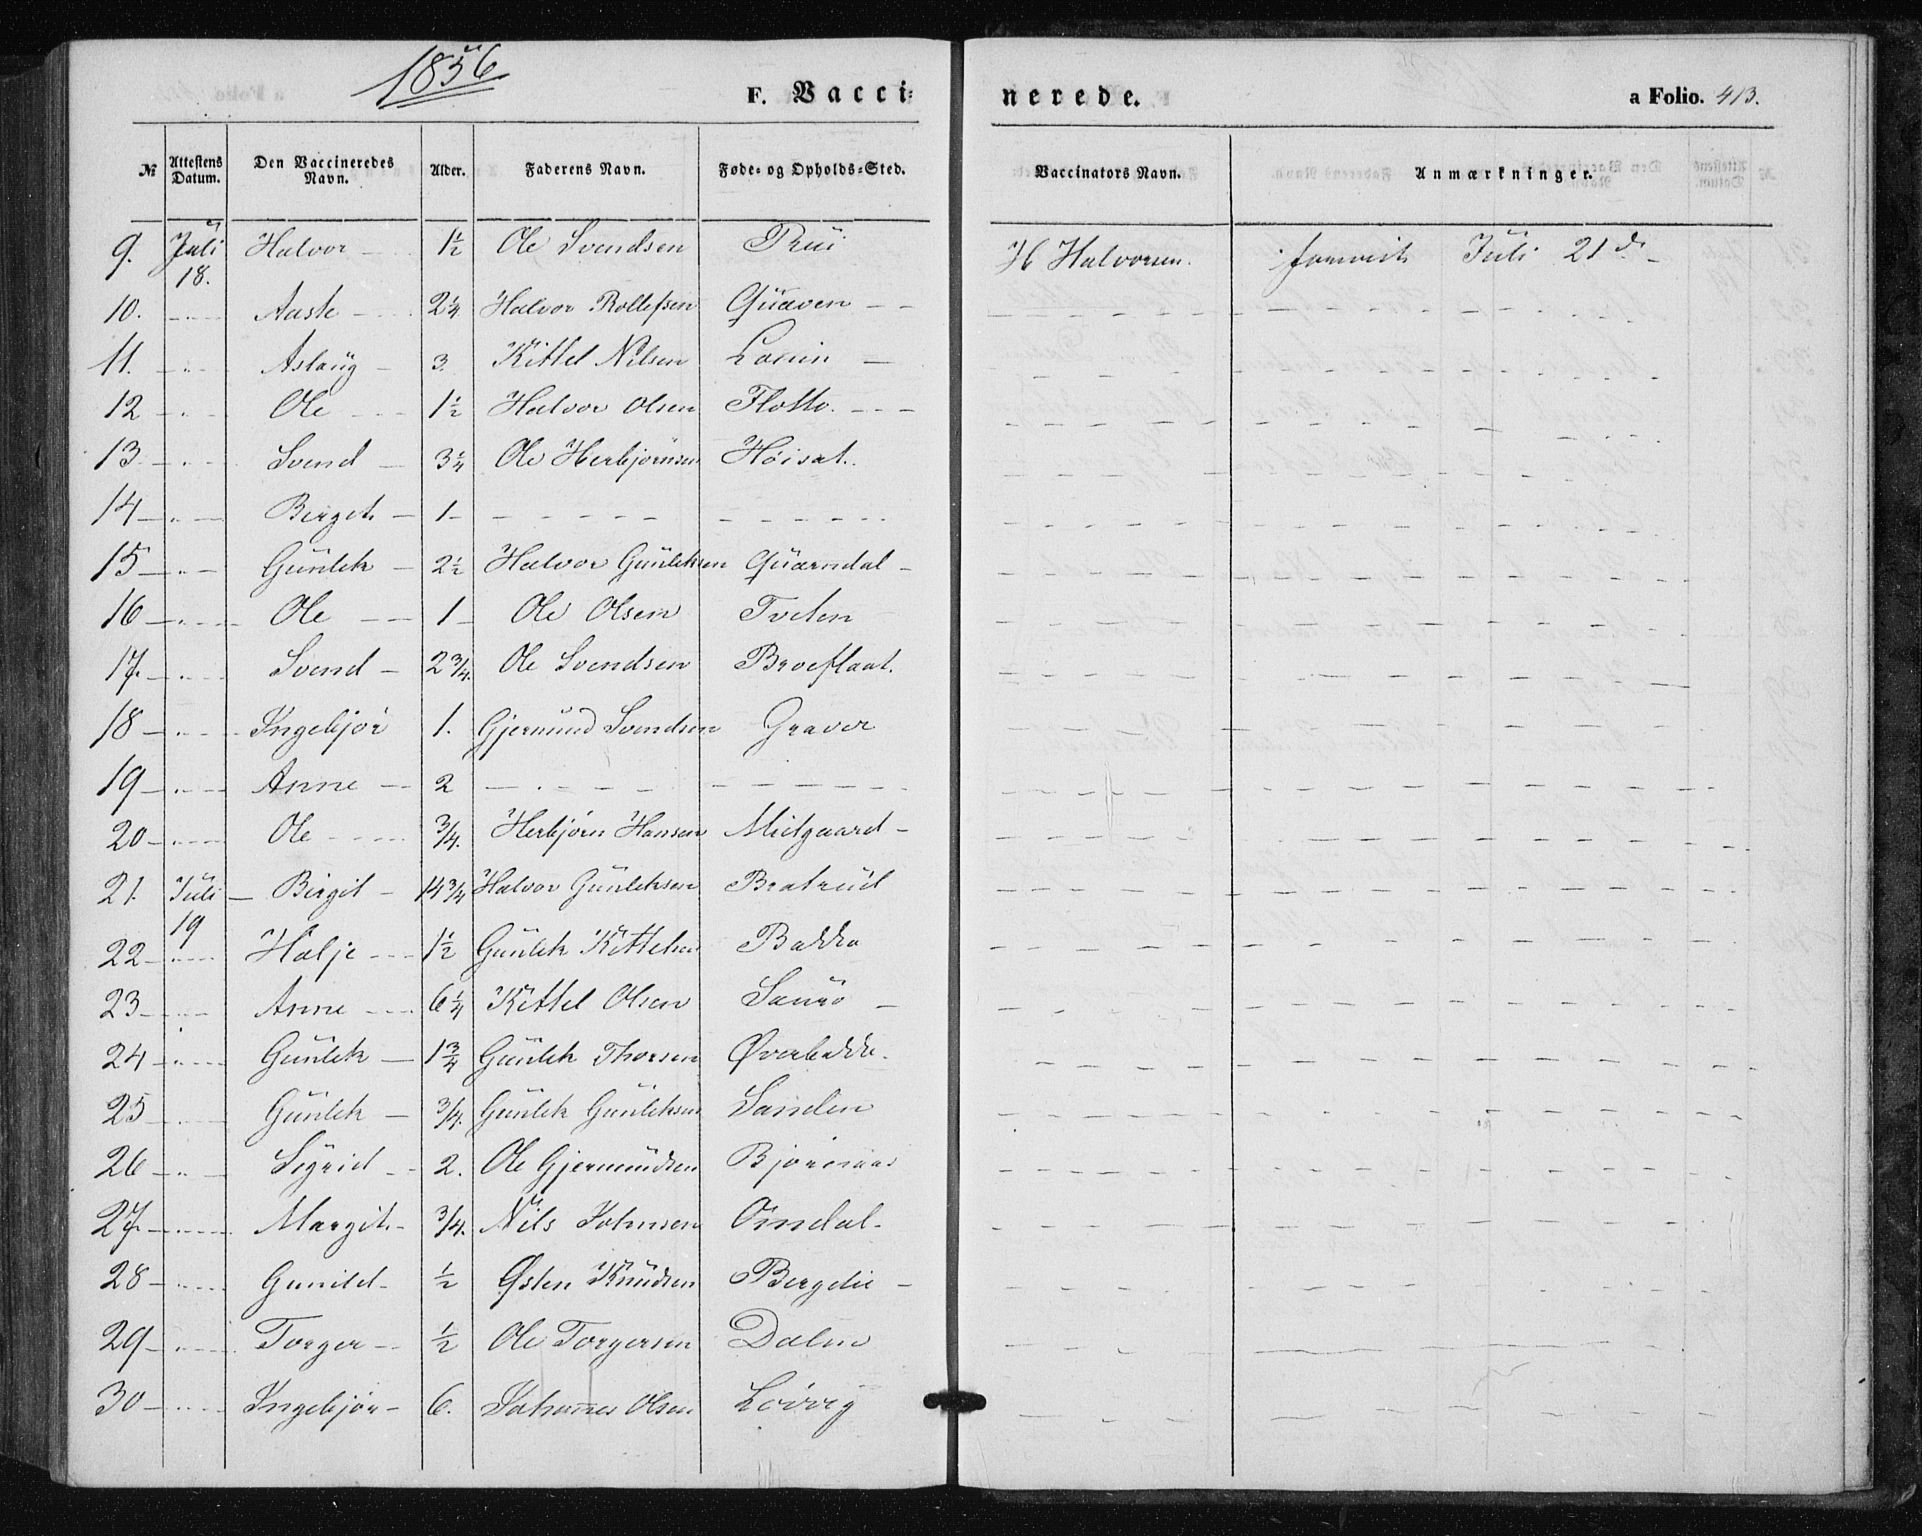 1856
F. Vacci=
nerede.
a Folio. 413.
№ Attestens Datum. Den Vaccineredes Navn. Alder. Faderens Navn. Føde= og Opholds=Sted. Vaccinators Navn. Anmærkninger.
9. Juli 18. Halvor 1½ Ole Svendsen H Halvorsen. Juli 21de
10. Aaste 2¼ Halvor Rollefsen Quaven
11. Aslaug 3. Kittel Nilsen
12 Ole 1½ Halvor Olsen
13 Svend 3¼ Ole Herbjørnsen Høisæt.
14 Berget 1
15 Gunlek 2½ Halvor Gunleksen Quærndal
16 Ole 1 Ole Olsen Tveten
17. Svend 2¾ Ole Svendsen Broeflaat.
18 Ingebjør 1. Gjermund Svendsen Graver
19 Anne 2
20 Ole ¾. Herbjørn Hansen Midgaard
21. Juli 19 Birgit 14¾ Halvor Gunleksen Bratrud
22 Hælje 1½ Gunlek Kittelsen Bakka
23 Anne 6¼ Kittel Olsen
24 Gunlek 1¾ Gunlek Thorsen Øverbakke.
25 Gunlek ¾. Gunlek Gunleksen Sanden
26 Sigrid 2. Ole Gjermundsen
27. Margit ¾. Nils Johnsen Omdal
28 Gunild ½ Østen Knudsen Bergelie
29 Torger ½ Ole Torgersen Dalen
30 Ingebjør 6. Johannes Olsen